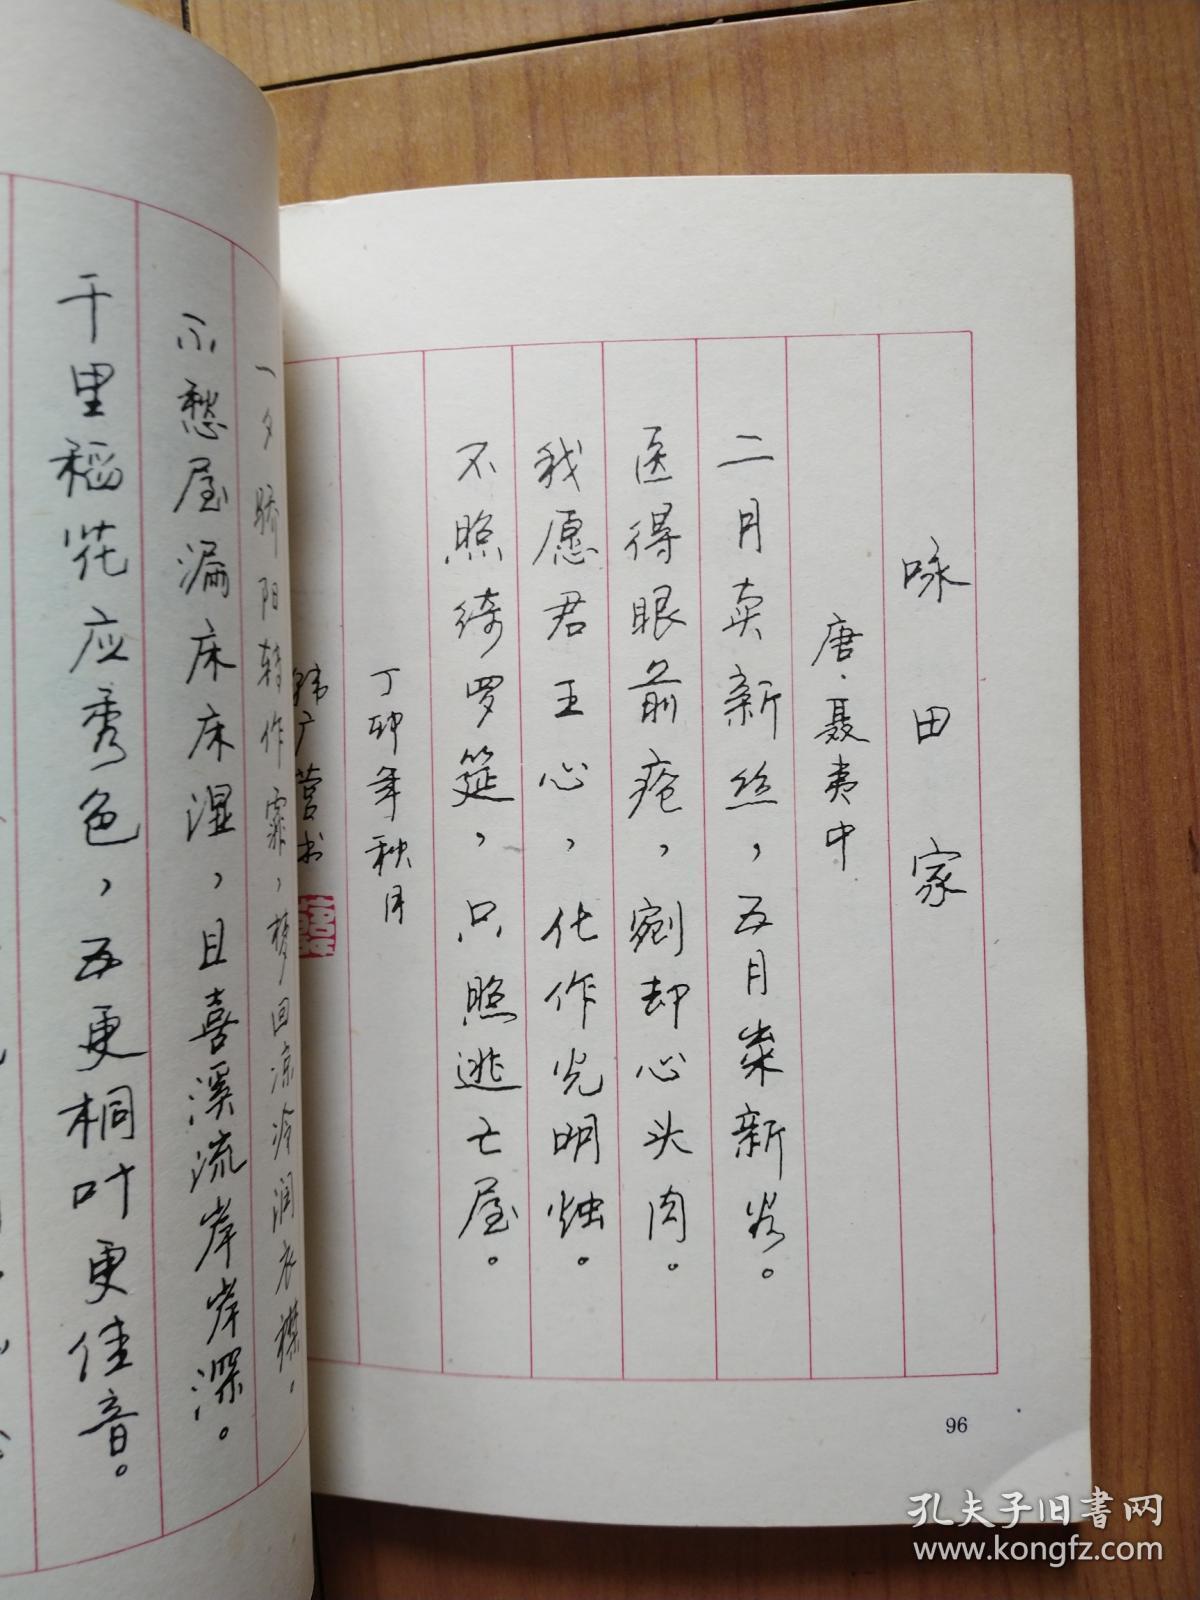 咏田家
唐·聂夷中
二月卖新丝，五月粜新谷。
医得眼前疮，剜却心头肉。
我愿君王心，化作光明烛。
不照绮罗筵，只照逃亡屋。
丁卯年秋月
韩广营书
96
一夕骄阳转作霖，梦回凉冷润衣襟。
不愁屋漏床床湿，且喜溪流岸岸深。
千里稻花应秀色，五更桐叶更佳音。
孔夫子旧书网
www.kongfz.com